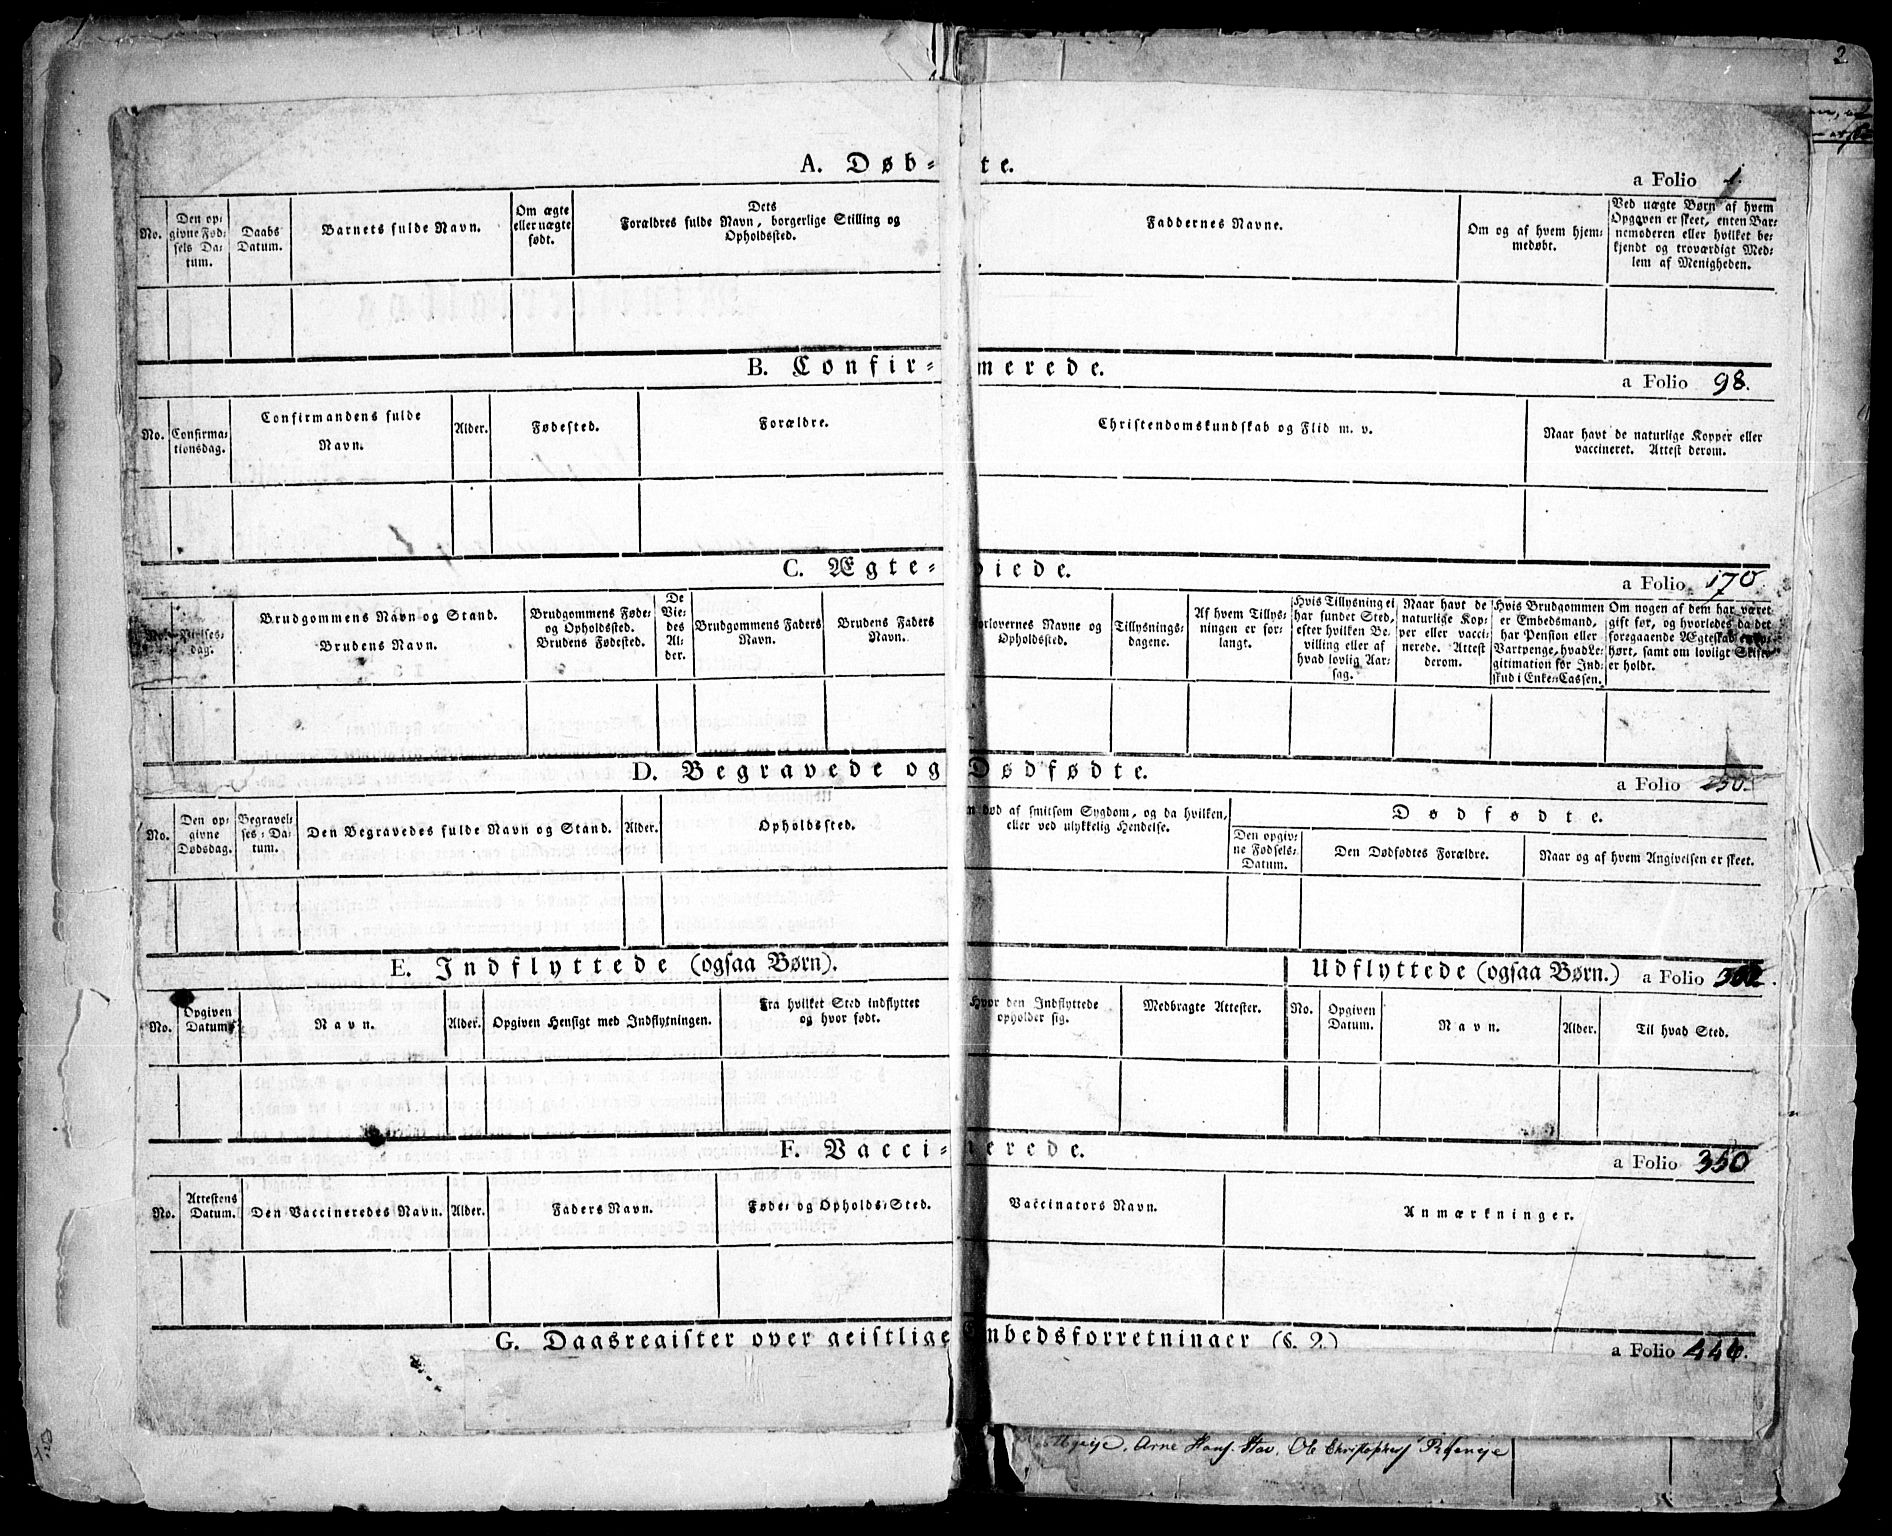 2
A. Døb- te.
a Folio 1.
No.
Den op-
givne Fød-
sels Da-
tum.
Daabs
Datum.
Barnets fulde Navn.
Om ægte
eller uægte
født.
Dets
Forældres fulde Navn, borgerlige Stilling og
Opholdssted.
Faddernes Navne.
Om og af hvem hjem-
medøbt.
Ved uægte Børn af hvem
Opgaven er skeet, enten Bar-
nemoderen eller hvilket be-
kjendt og troværdigt Med-
lem af Menigheden.
B. Confir- merede.
a Folio 98.
No.
Confirma-
tionsdag.
Confirmandens fulde
Navn.
Alder.
Fødested.
Forældre.
Christendomskundskab og Flid m. v.
Naar havt de naturlige Kopper eller
vaccineret. Attest derom.
C. Ægte- viede.
a Folio 170
No.
Vielses-
dag.
Brudgommens Navn og Stand.
Brudens Navn.
Brudgommens Føde-
og Opholdssted.
Brudens Fødested.
De
Vie-
des
Al-
der.
Brudgommens Faders
Navn.
Brudens Faders
Navn.
Forlovernes Navne og
Opholdssted.
Tillysnings-
dagene.
Af hvem Tillys-
ningen er for-
langt.
Hvis Tillysning ei
har fundet Sted,
efter hvilken Be-
villing eller af
hvad lovlig Aar-
sag.
Naar havt de
naturlige Kop-
per eller vacci-
nerede. Attest
derom.
Hvis Brudgommen
er Embedsmand,
har Pension eller
Vartpenge, hvad Le-
gitimation for Ind-
skud i Enke-Cassen.
Om nogen af dem har været
gift før, og hvorledes da det
foregaaende Ægteskab er op-
hørt, samt om lovligt Skifte
er holdt.
D. Begravede og Dødfødte.
a Folio 250.
No.
Den op-
givne
Dødsdag.
Begravel-
ses-Da-
tum.
Den Begravedes fulde Navn og Stand.
Alder.
Opholdssted.
død af smitsom Sygdom, og da hvilken,
eller ved ulykkelig Hendelse.
Dødfødte.
Den opgiv-
ne Fødsels-
Datum.
Den Dødfødtes Forældre.
Naar og af hvem Angivelsen er skeet.
E. Indflyttede (ogsaa Børn).
Udflyttede (ogsaa Børn.) a Folio 302.
No.
Opgiven
Datum.
Navn.
Alder.
Opgiven Hensigt med Indflytningen.
Fra hvilket Sted indflyttet
og hvor født.
Hvor den Indflyttede
opholder sig.
Medbragte Attester.
No.
Opgiven
Datum.
Navn.
Alder.
Til hvad Sted.
F. Vacci- nerede.
a Folio 350
No.
Attestens
Datum.
Den Vaccineredes Navn.
Alder.
Faders Navn.
Føde- og Opholds-Sted.
Vaccinators Navn.
Anmærkninger.
G. Dagsregister over geistlige Embedsforretninger (§. 2.)
a Folio 446.
Arne Hans. Stav. Ole Christophers.